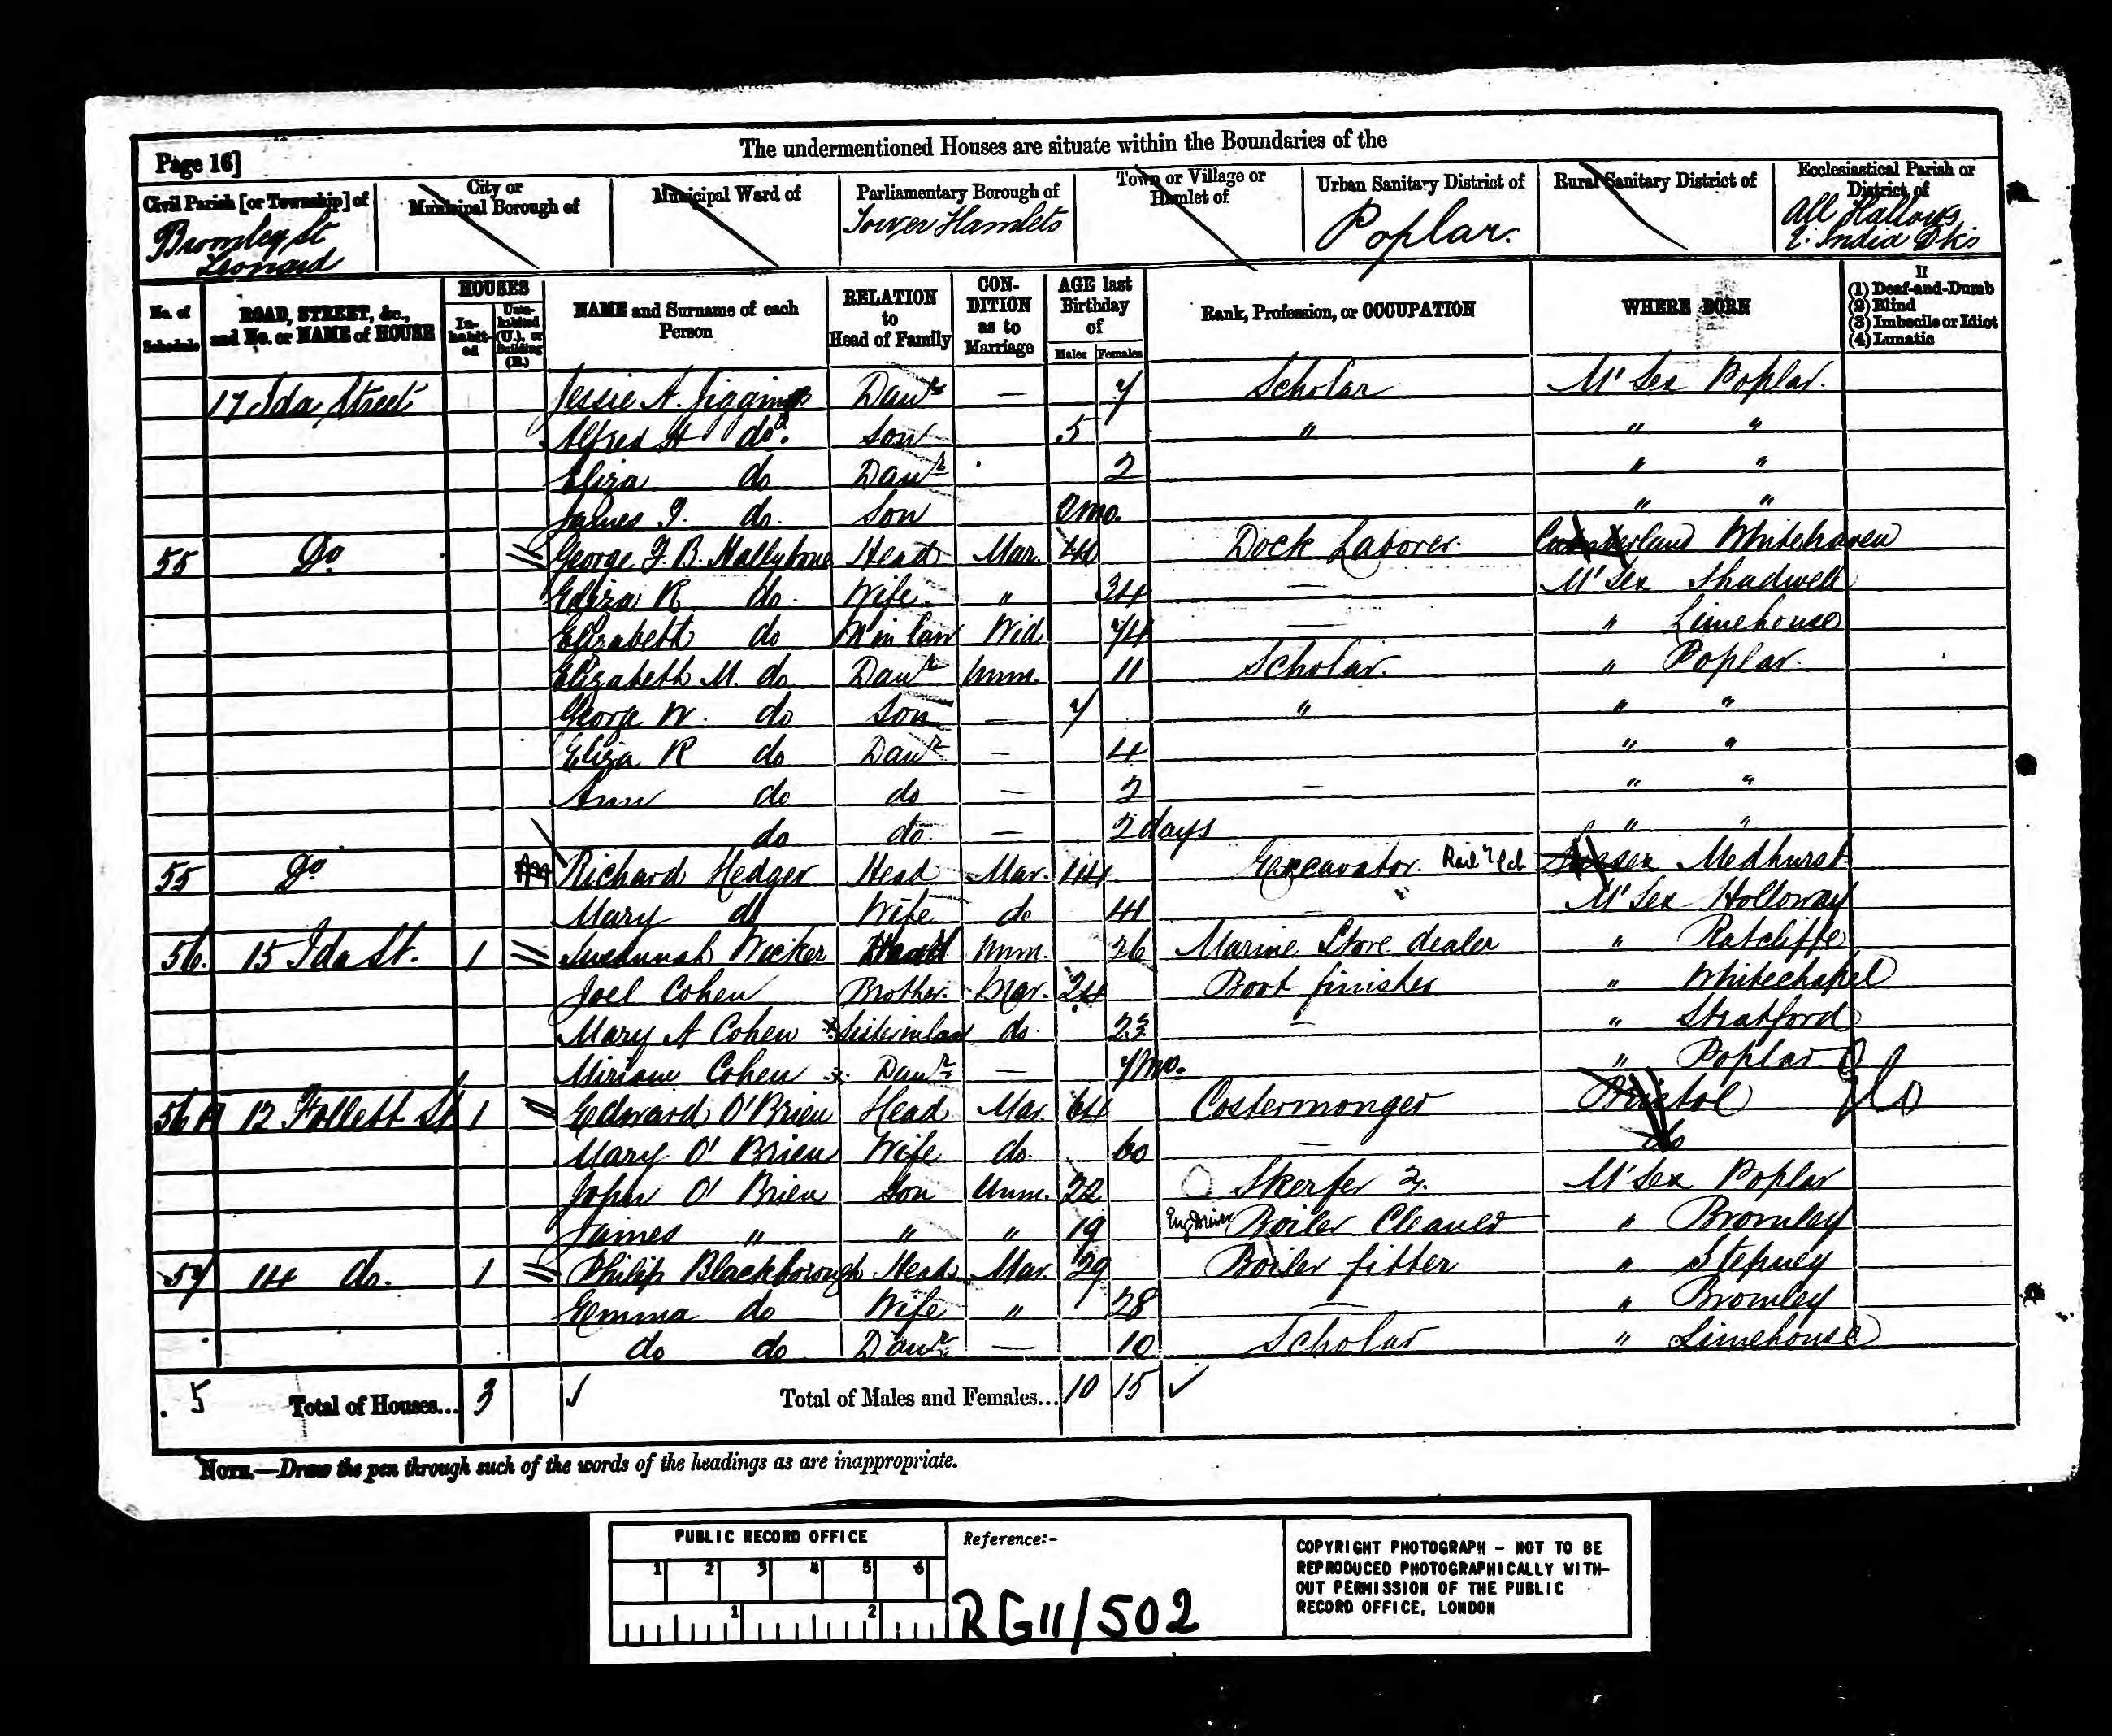 The undermentioned Houses are situate within the Boundaries of the
Page 16]
Civil Parish [or Township] of
Bromley St
Leonard
City or
Municipal Borough of
Municipal Ward of
Parliamentary Borough of
Tower Hamlets
Town or Village or
Hamlet of
Urban Sanitary District of
Poplar.
Rural Sanitary District of
Ecclesiastical Parish or
District of
All Hallows
E. India Dks
No. of
Schedule
ROAD, STREET, &c.,
and No. or NAME of HOUSE
HOUSES
In-
habit-
ed
Unin-
habited
(U.), or
Building
(B.)
NAME and Surname of each
Person
RELATION
to
Head of Family
CON-
DITION
as to
Marriage
AGE last
Birthday
of
Males Females
Rank, Profession, or OCCUPATION
WHERE BORN
If
(1) Deaf-and-Dumb
(2) Blind
(3) Imbecile or Idiot
(4) Lunatic
17 Ida Street Jessie A. Jiggins Daur — 7 Scholar M'sex Poplar.
Alfred H do. Son 5 " " "
Eliza do Daur 2 " "
James do. Son 2 mo. " "
55 Do George F. B. Mallybone Head Mar. 44 Dock Laborer. Cumberland Whitehaven
Eliza R do. Wife. " 34 — M'sex Shadwell
Elizabeth do M in law Wid 74 — " Limehouse
Elizabeth M. do Daur Unm. 11 Scholar. " Poplar.
George W. do Son — 7 " " "
Eliza R do Daur — 4 " "
Ann do do — 2 — " "
do do. — 2 days " "
55 Do Richard Hedger Head Mar. 44 Excavator. Sussex Medhurst
Mary do Wife do 41 M'sex Holloway
56. 15 Ida St. 1 Susannah Wicker Head Unm. 26 Marine Store dealer " Ratcliffe
Joel Cohen Brother. Mar. 24 Boot finisher " Whitechapel
Mary A Cohen Sister in law do. 22 — " Stratford
Miriam Cohen Daur — 7 mo. " Poplar
56A 12 Follett St. 1 Edward O'Brien Head Mar. 64 Costermonger Bristol Glo
Mary O' Brien Wife do. 60 — do
John O' Brien Son Unm. 22 M'sex Poplar
James " " " 19 Eng Driver Boiler Cleaner " Bromley
57 14 do. 1 Philip Blackborough Head Mar. 29 Boiler fitter " Stepney
Emma do Wife " 28 — " Bromley
do do Daur. — 10 Scholar " Limehouse
5 Total of Houses... 3 ✓ Total of Males and Females... 10 15 ✓
NOTE.—Draw the pen through such of the words of the headings as are inappropriate.
PUBLIC RECORD OFFICE
1 2 3 4 5 6
1 2
Reference:-
RG11/502
COPYRIGHT PHOTOGRAPH - NOT TO BE
REPRODUCED PHOTOGRAPHICALLY WITH-
OUT PERMISSION OF THE PUBLIC
RECORD OFFICE, LONDON